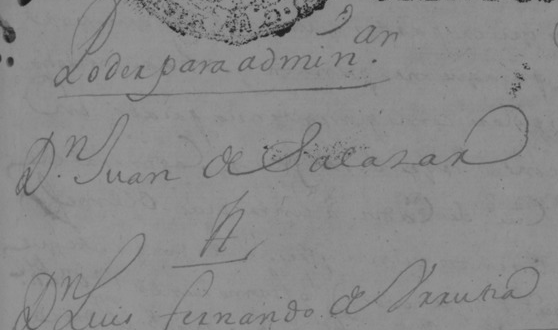 Poder para admin.ᵃⁿ
D.ⁿ Juan de Salazar
A
D.ⁿ Luis fernando de Vrrutia